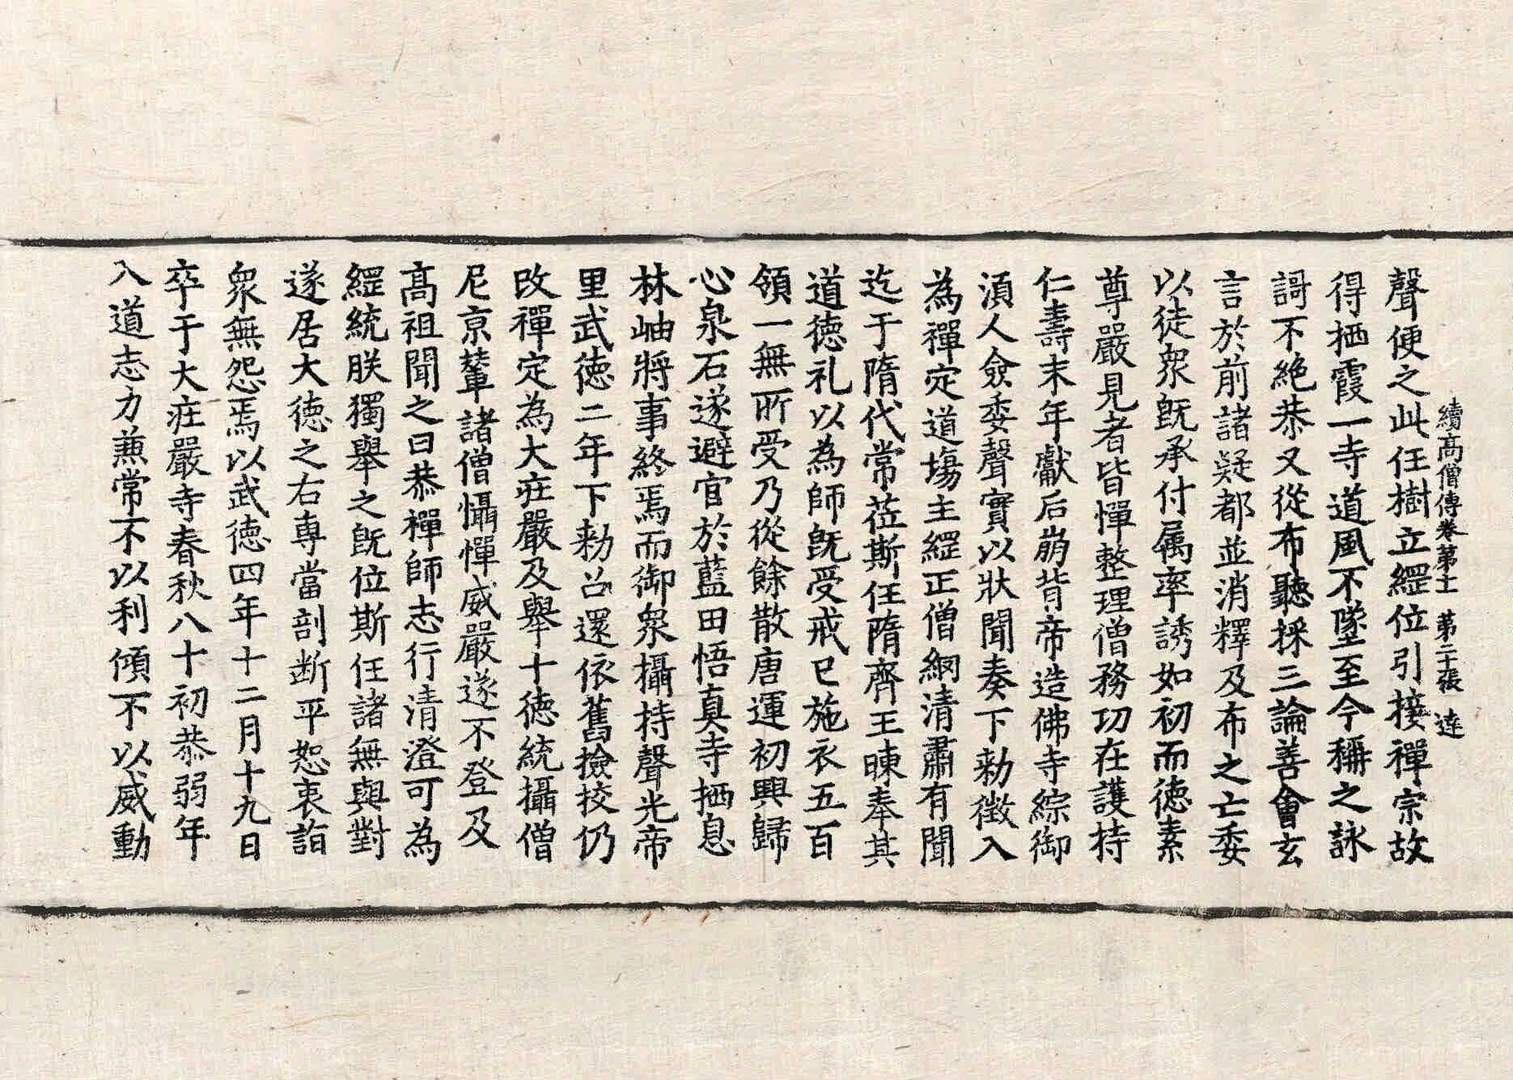 續高僧傳卷第十一　第二十張　達
聲便之此任樹立綱位引接禪宗故
得栖霞一寺道風不墜至今稱之詠
謌不絶恭又從布聽採三論善會玄
言於前諸疑都並消釋及布之亡委
以徒衆旣承付属率誘如初而德素
尊嚴見者皆憚整理僧務功在護持
仁壽末年獻后崩背帝造佛寺綜御
湏人僉委聲實以狀聞奏下勑徵入
為禪定道場主綱正僧網清肅有聞
迄于隋代常莅斯任隋齊王暕奉其
道德礼以為師旣受戒已施衣五百
領一無所受乃從餘散唐運初興歸
心泉石遂避官於藍田悟真寺栖息
林岫將事終焉而御衆攝持聲光帝
里武德二年下勑召還依舊撿挍仍
改禪定為大莊嚴及舉十德統攝僧
尼京輦諸僧懾憚威嚴遂不登及
高祖聞之曰恭禪師志行清澄可為
綱統朕獨舉之旣位斯任諸無與對
遂居大德之右專當剖断平恕衷詣
衆無怨焉以武德四年十二月十九日
卒于大莊嚴寺春秋八十初恭弱年
入道志力兼常不以利傾不以威動